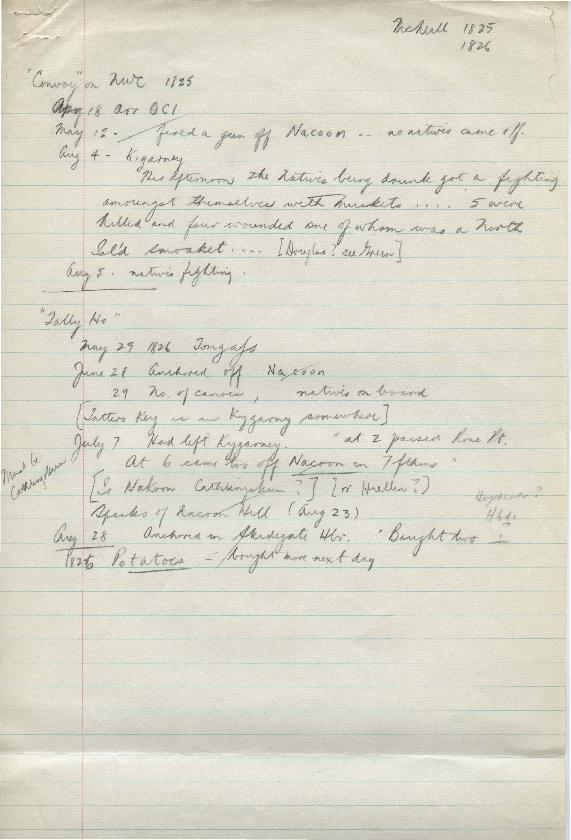 McNeill 1825
1826
"Convoy" on NWC 1825
Apr 18 Arr QCI
May 12 - fired a gun off Nacoon -- no natives came off.
Aug 4 - Kigarney
This afternoon the natives being drunk got a fighting
amongst themselves with muskets .... 5 were
killed and four wounded one of whom was a North
Isl'd smoaket .... [Douglas? see Green]
Aug 5. natives fighting.
"Tally Ho"
May 29 1826 Tongass
June 28 Anchored off Nacoon
29 No. of canoes, natives on board
[Tatters Key is in Kygarny somewhere]
July 7 Had left Kygarney. "at 2 passed Rose Pt.
At 6 came too off Nacoon in 7 fthms"
Must be
[Is Nakoon Cathlingskun?] [or Hiellen?]
Speaks of Nacoon Hill (Aug 23)
Aug 28 Anchored in Skidegate Hbr. "Bought two
Hbds
1826 Potatoes - bought more next day